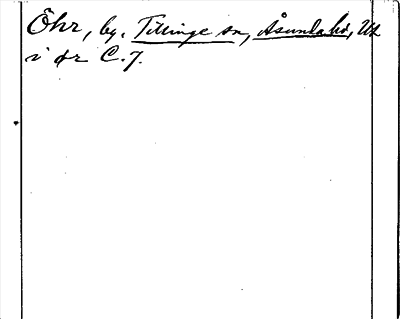 Öhr, by, Tillinge sn, Åsunda hd, Upl.
i ör C. J.